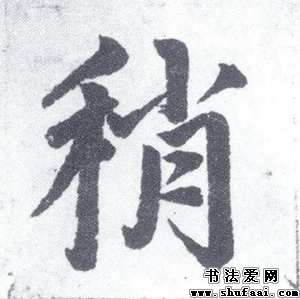 稍
书法爱网
www.shufaai.com